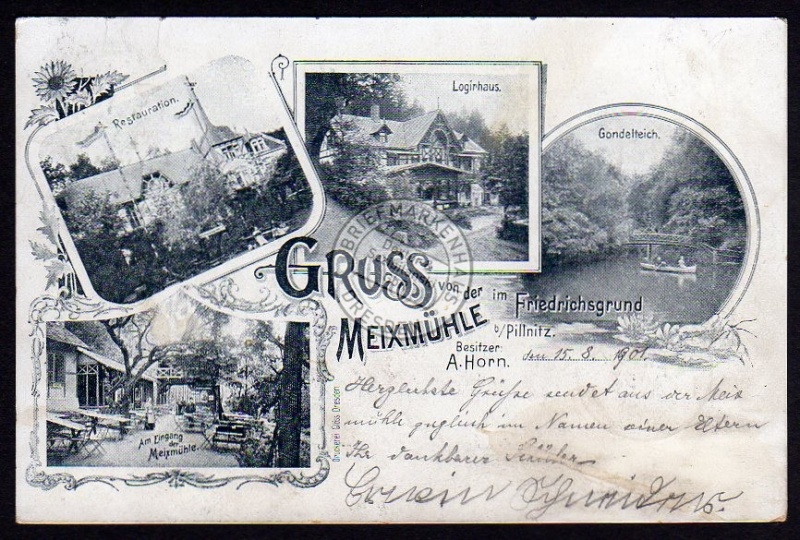 Restauration.
Logirhaus.
Gondelteich.
GRUSS
von der
MEIXMÜHLE
im Friedrichsgrund
b/Pillnitz.
Besitzer:
A. Horn.
den 15. 8. 1901.
Am Eingang
der Meixmühle.
Herzlichste Grüße sendet aus der Meix
mühle zugleich im Namen seiner Eltern
Ihr dankbarer Schüler
Erwin
BRIEFMARKENHAUS
DRESDEN